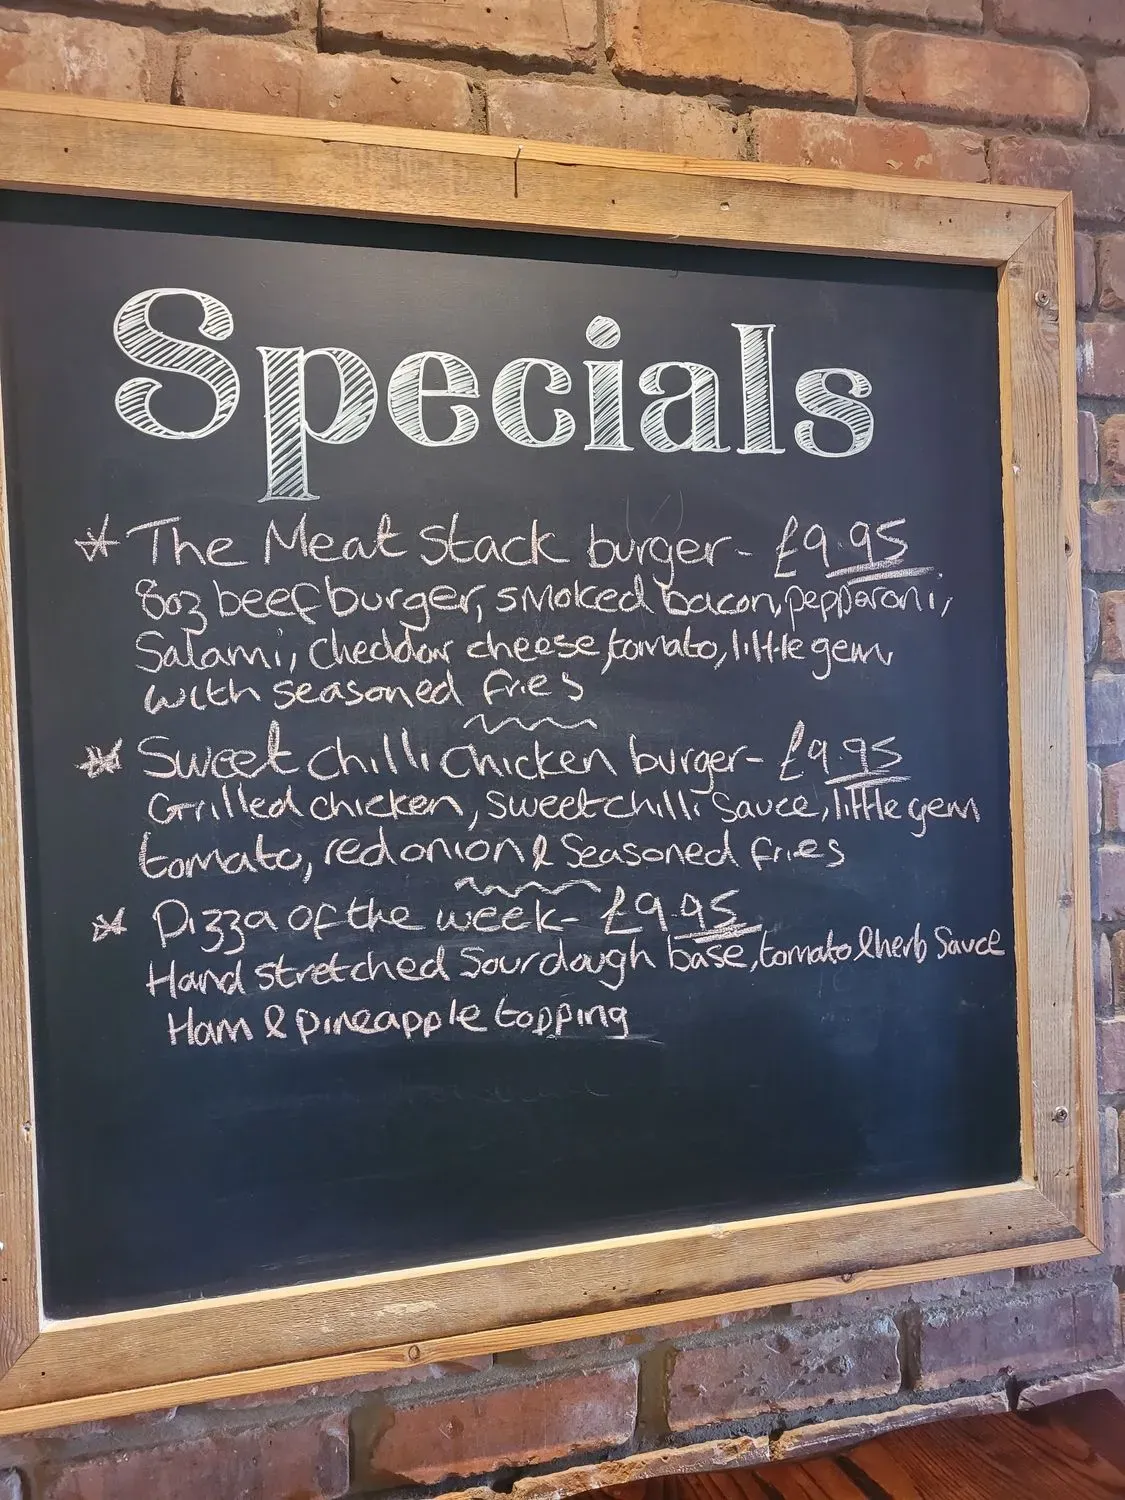 Specials
* The Meat Stack burger - £9.95
8oz beef burger, smoked bacon, pepperoni,
Salami, cheddar cheese, tomato, little gem,
with seasoned fries
* Sweet chilli chicken burger - £9.95
Grilled chicken, sweet chilli sauce, little gem
tomato, red onion & seasoned fries
* Pizza of the week - £9.95
Hand stretched Sourdough base, tomato & herb Sauce
Ham & pineapple topping